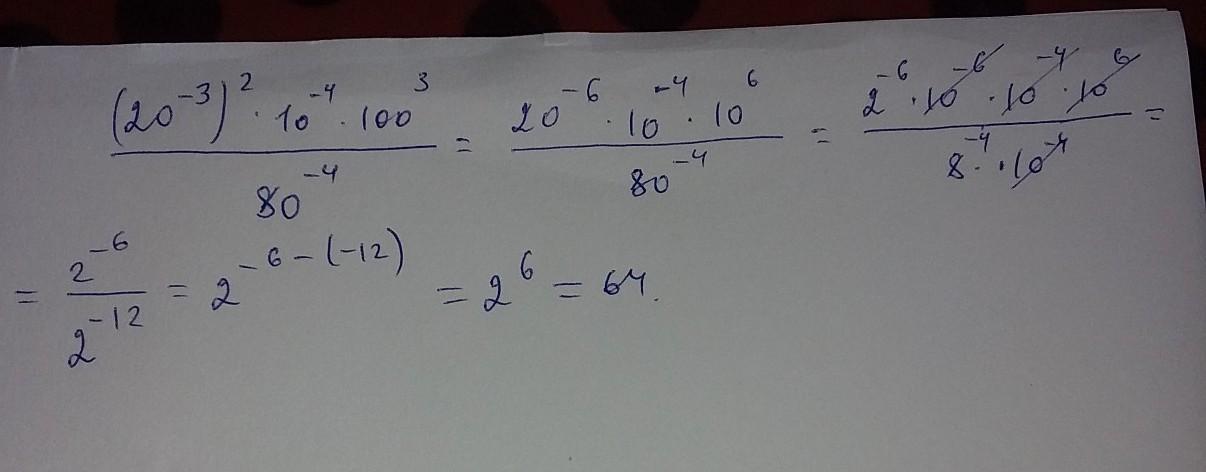 (20⁻³)² · 10⁻⁴ · 100³ / 80⁻⁴ = 20⁻⁶ · 10⁻⁴ · 10⁶ / 80⁻⁴ = 2⁻⁶ · 10⁻⁶ · 10⁻⁴ · 10⁶ / 8⁻⁴ · 10⁻⁴ =
= 2⁻⁶ / 2⁻¹² = 2⁻⁶⁻⁽⁻¹²⁾ = 2⁶ = 64.